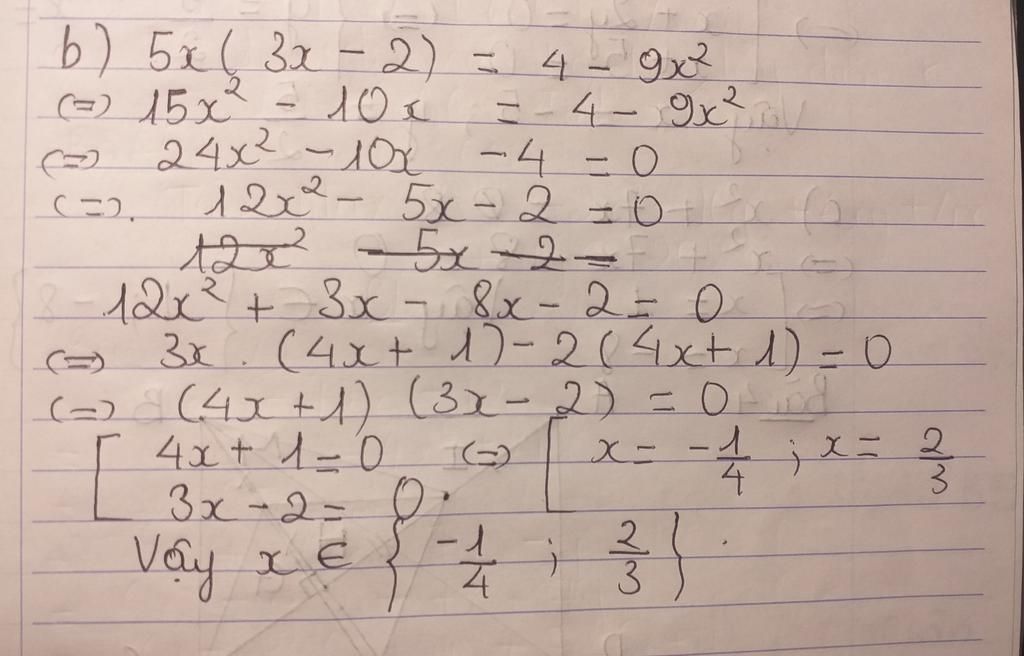 b) 5x( 3x - 2) = 4 - 9x²
(=) 15x² - 10x = 4 - 9x²
(=) 24x² - 10x - 4 = 0
(=). 12x² - 5x - 2 = 0
12x² - 5x - 2 =
12x² + 3x - 8x - 2 = 0
(=) 3x . (4x + 1) - 2 (4x + 1) = 0
(=) (4x + 1) (3x - 2) = 0
[ 4x + 1 = 0 (=) [ x = -1/4 ; x = 2/3
3x - 2 = 0.
Vậy x ∈ { -1/4 ; 2/3 } .